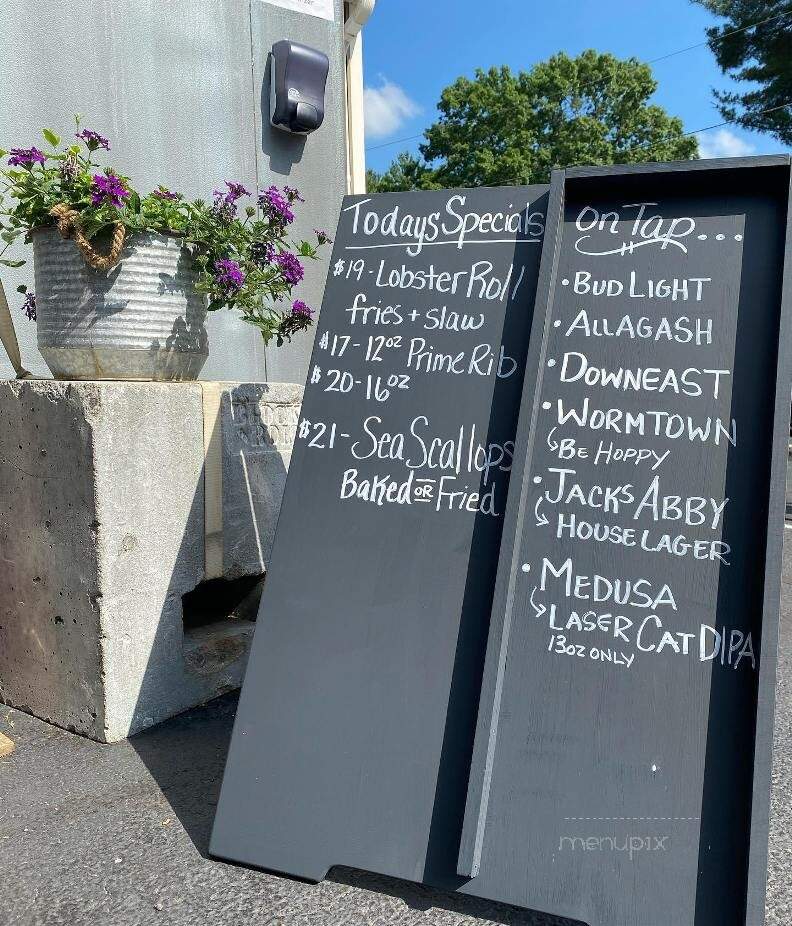 Todays Specials
$19-Lobster Roll
fries + slaw
$17-12oz Prime Rib
$20-16oz
$21-Sea Scallops
Baked or Fried
On Tap...
• Bud Light
• Allagash
• Downeast
• Wormtown
Be Hoppy
• Jacks Abby
House Lager
• Medusa
Laser Cat DIPA
13oz only
menupix